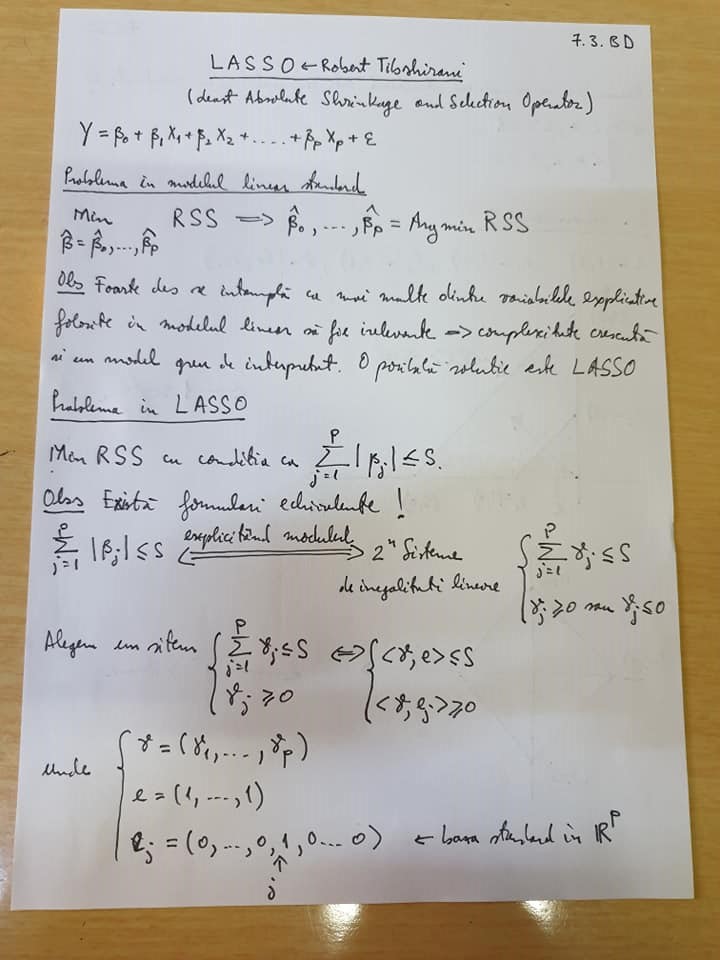 7.3.BD
LASSO ← Robert Tibshirani
(Least Absolute Shrinkage and Selection Operator)
Y = β₀ + β₁X₁ + β₂X₂ + ..... + βₚXₚ + ε
Problema in modelul linear standard
Min RSS ⟹ β̂₀, ..., β̂ₚ = Arg min RSS
β̂ = β̂₀, ..., β̂ₚ
Obs Foarte des se intamplă ca mai multe dintre variabilele explicative
folosite in modelul linear să fie irelevante ⟹ complexitate crescută
si un model greu de interpretat. O posibilă solutie este LASSO
Problema in LASSO
Min RSS cu conditia ca ∑ⱼ₌₁ᵖ |βⱼ| ≤ S.
Obs Există formulari echivalente !
∑ⱼ₌₁ᵖ |βⱼ| ≤ S ⟺ explicitând modulul 2ⁿ Sisteme de inegalitati lineare { ∑ⱼ₌₁ᵖ γⱼ ≤ S
γⱼ ≥ 0 sau γⱼ ≤ 0
Alegem un sistem { ∑ⱼ₌₁ᵖ γⱼ ≤ S ⟺ { <γ, e> ≤ S
γⱼ ≥ 0 <γ, eⱼ> ≥ 0
unde { γ = (γ₁, ..., γₚ)
e = (1, ..., 1)
eⱼ = (0, ..., 0, 1, 0 ... 0) ← baza standard in ℝᵖ
↑
j